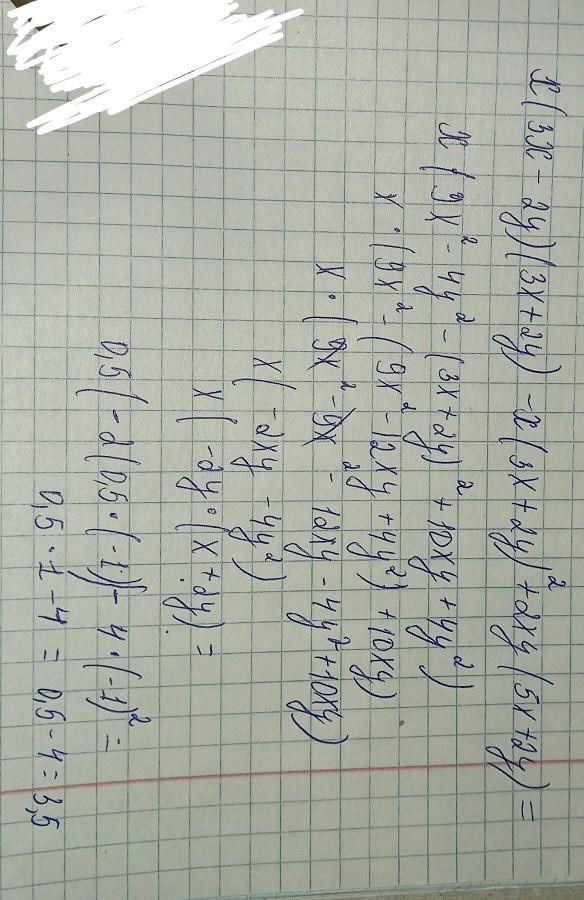 x(3x-2y)(3x+2y)-x(3x+2y)²+2xy(5x+2y)=
x(9x²-4y²-(3x+2y)²+10xy+4y²)
x·(9x²-(9x²-12xy+4y²)+10xy)
x·(9x²-9x²-12xy-4y²+10xy)
x(-2xy-4y²)
x(-2y·(x+2y)=
0,5(-2(0,5·(-1))-4·(-1)²=
0,5·1-4=0,5-4=3,5